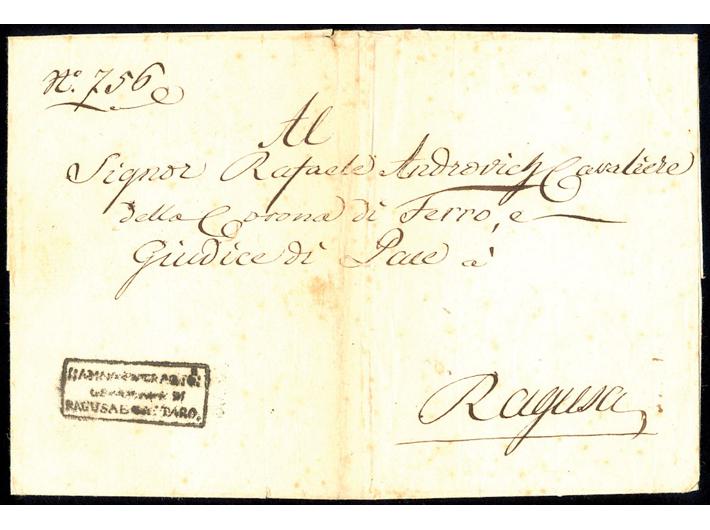 No. 756
Al
Signor Rafaele Androvich Cavaliere
della Corona di Ferro, e
Giudice di Pace à
Ragusa
RAGUSA E CATTARO.